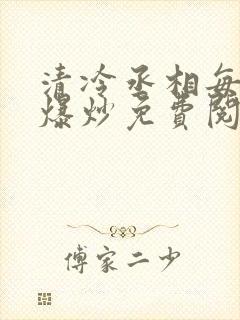 清冷丞相每
爆炒免费阅
傅家二少